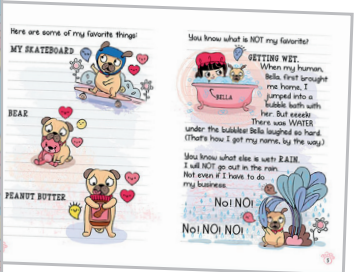 Here are some of my favorite things:
MY SKATEBOARD
BEAR
PEANUT BUTTER
You know what is NOT my favorite?
GETTING WET.
When my human,
Bella, first brought
me home, I
jumped into a
bubble bath with
her. But eeeek!
There was WATER
under the bubbles! Bella laughed so hard.
(That's how I got my name, by the way.)
BELLA
You know what else is wet? RAIN.
I will NOT go out in the rain.
Not even if I have to do
my business.
No! NO!
No! NO! NO!
5